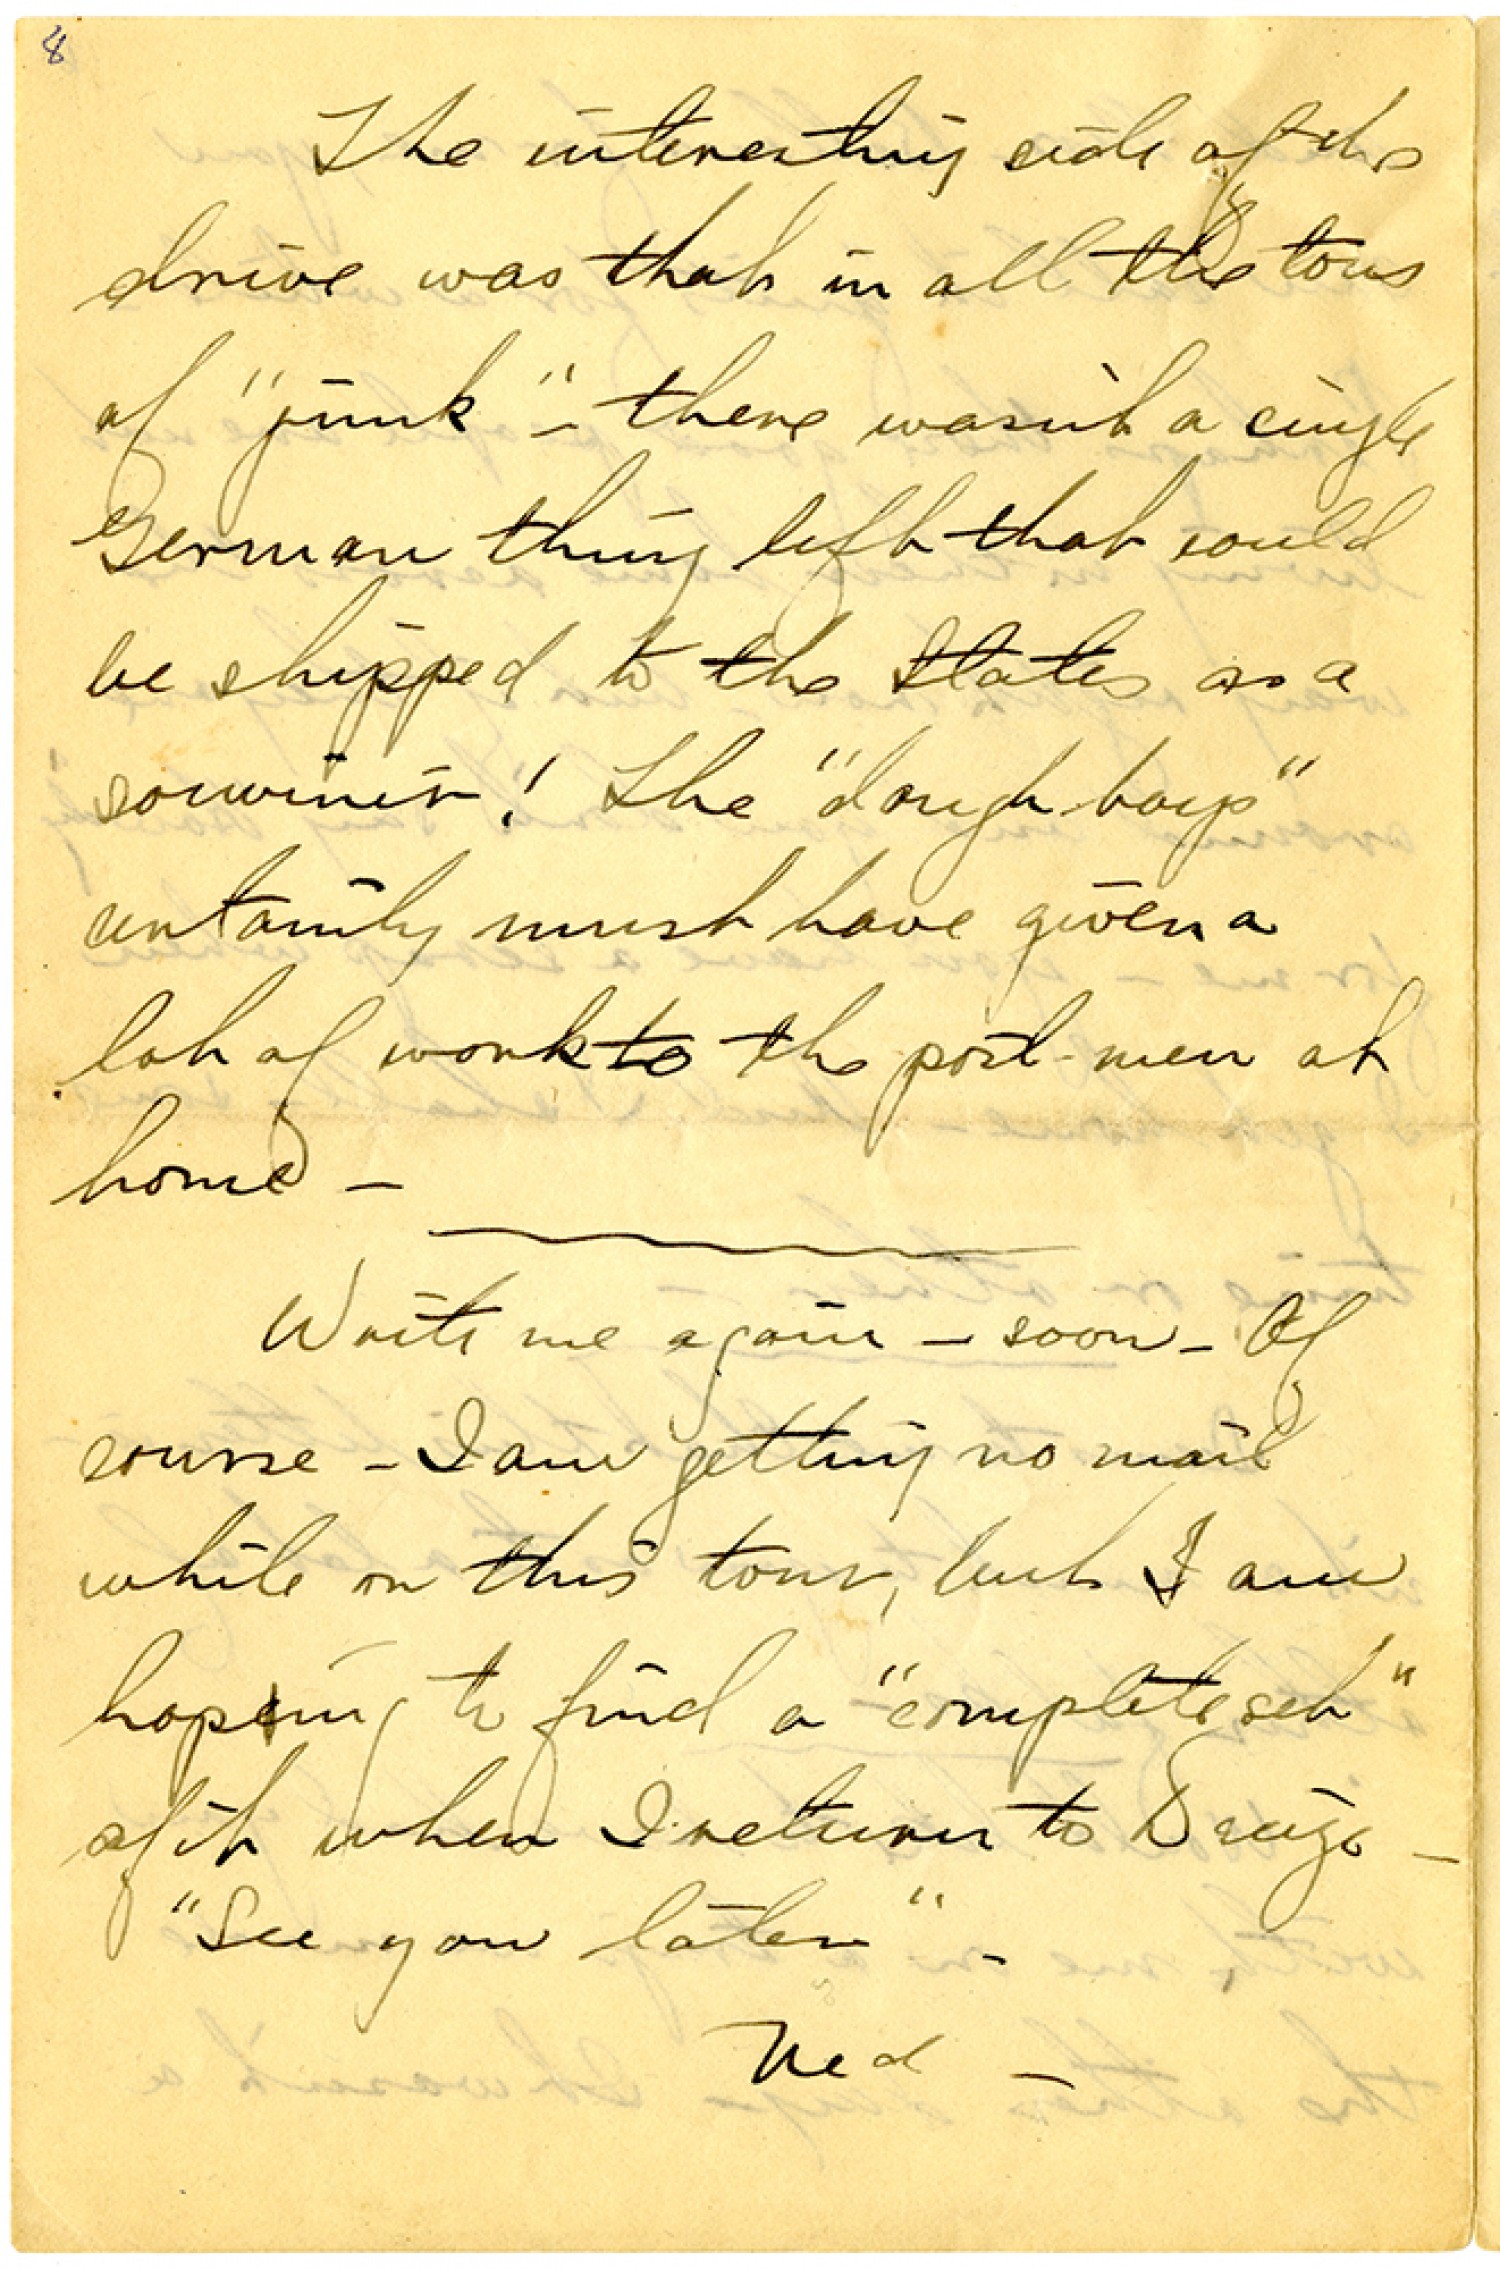 8
The interesting side of the
drive was that in all the tons
of "junk" – there wasn't a single
German thing left that could
be shipped to the States as a
souvinir! The "dough-boys"
certainly must have given a
lot of work to the post-men at
home –
Write me again – soon – Of
course – I am getting no mail
while on this tour, but I am
hoping to find a "complete set"
of it when I return to
"See you later" –
Ned –